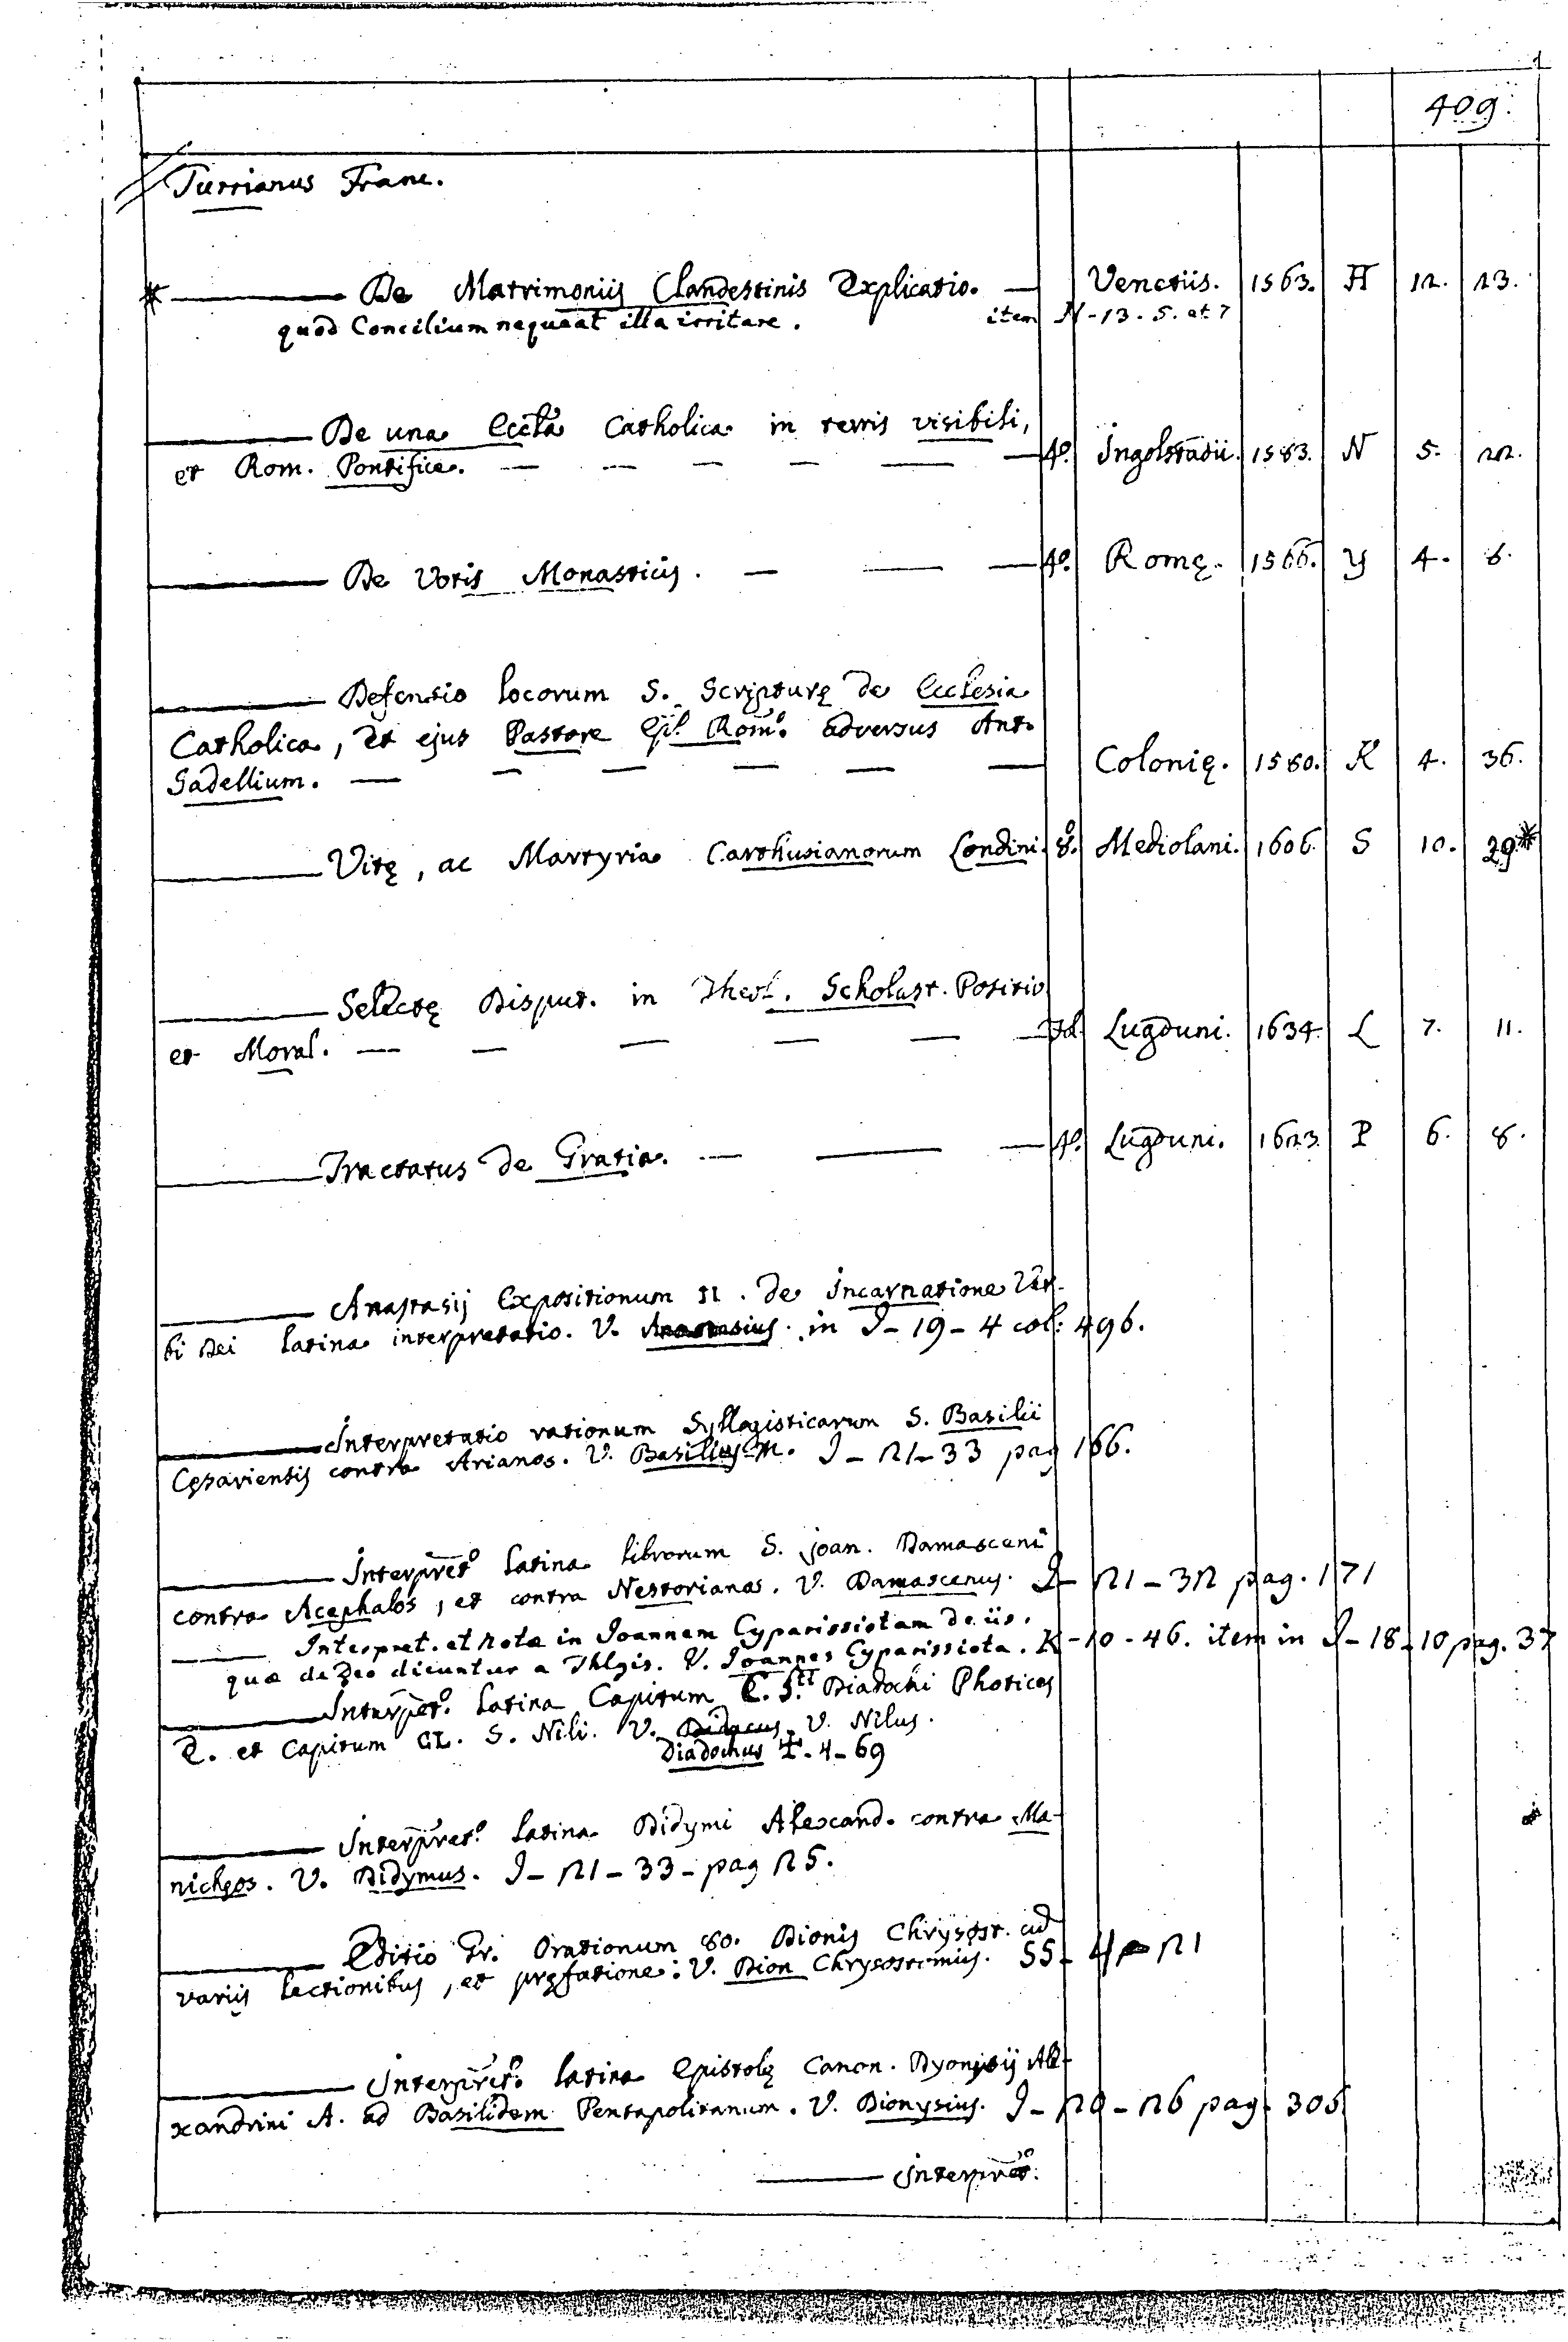 409.
Turrianus Franc.
* De Matrimoniis Clandestinis Explicatio. — Venetiis. 1563. H 12. 23.
quod Concilium nequeat illa irritare. item N-13. 5. et 7
De una Eccła Catholica in terris visibili,
et Rom. Pontifice. — 4º. Ingolstadii. 1583. N 5. 22.
De Votis Monasticis. — 4º. Romę. 1566. Y 4. 6.
Defensio locorum S. Scripturę de Ecclesia
Catholica, et ejus Pastore Rom.º adversus Ant.
Sadellium. — Colonię. 1580. K 4. 36.
Vitę, ac Martyria Carthusianorum Londini. 8º. Mediolani. 1606. S 10. 29*
Selectę Disput. in Theol. Scholast. Positiv.
et Moral. — Lugduni. 1634. L 7. 11.
Tractatus de Gratia. — 4º. Lugduni. 1623. P 6. 8.
Anastasij Expositionum II. de Incarnatione Ver-
bi Dei latina interpretatio. V. Anastasius. in J-19-4 col: 496.
Interpretatio rationum Syllogisticarum S. Basilii
Cęsariensis contra Arianos. V. Basilius M. J-21-33 pag 166.
Interpret.º latina librorum S. Joan. Damasceni
contra Acephalos, et contra Nestorianos. V. Damascenus. J-21-32 pag. 171
Interpret. et notæ in Joannem Cyparissiotam de iis.
quæ de Deo dicuntur a Thlgis. V. Joannes Cyparissiota. K-10-46. item in J-18-10 pag. 37
Interpret.º latina Capitum C. S.ti Diadochi Photices
E. et Capitum CL. S. Nili. V. Didacus. V. Nilus.
Diadochus T.-4-69
Interpret.º latina Didymi Alexand. contra Ma-
nichęos. V. Didymus. J-21-33-pag 25.
Editio Gr. Orationum 80. Dionis Chrysost. cũ
variis lectionibus, et pręfatione. V. Dion Chrysostomus. SS-4-21
Interpret.º latina Epistolę Canon. Dyonisij Ale-
xandrini A. ad Basilidem Pentapolitanum. V. Dionysius. J-20-26 pag. 305
Interpret.º